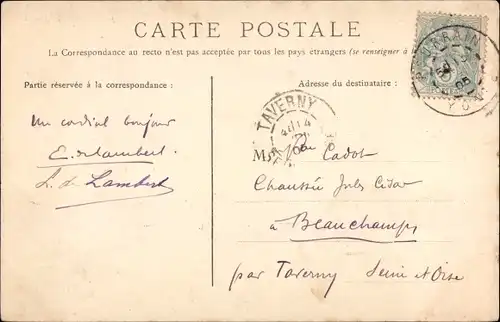 CARTE POSTALE
La Correspondance au recto n'est pas acceptée par tous les pays étrangers (se renseigner à
Partie réservée à la correspondance :
Adresse du destinataire :
TAVERNY
Un cordial bonjour
E. de Lambert
L. de Lambert
M Cadot
Chaussée Jules César
à Beauchamps
par Taverny Seine et Oise